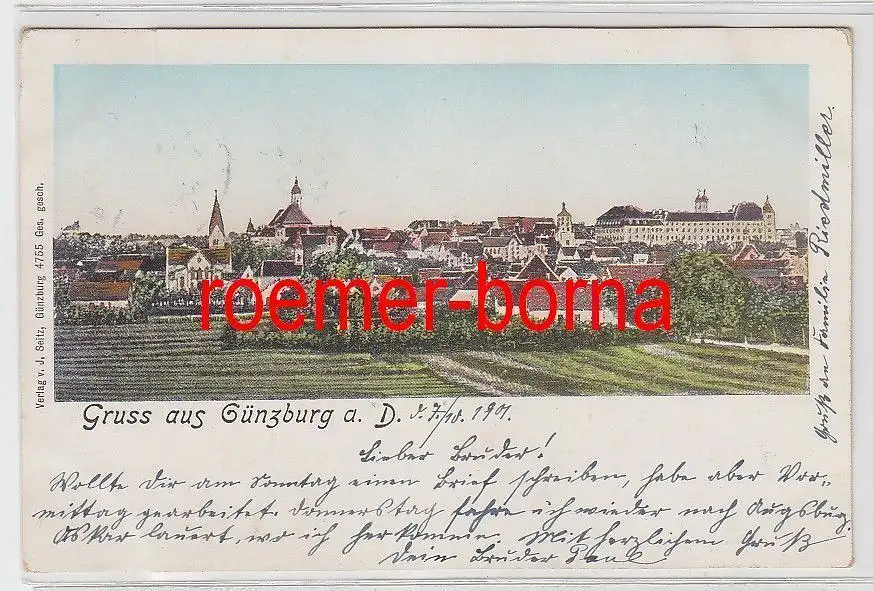 Verlag v. J. Seitz, Günzburg 4755 Ges. gesch.
roemer-borna
Gruss aus Günzburg a. D. d. 7./10. 1901.
Lieber Bruder!
Wollte Dir am Sonntag einen Brief schreiben, habe aber Vor-
mittag gearbeitet. Donnerstag fahre ich wieder nach Augsburg.
Oskar lauert, wo ich herkomme. Mit herzlichem Gruß
Dein Bruder Paul
Gruß an Familie Riedmiller.